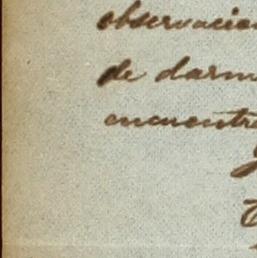 observacion
de darm
encuentre